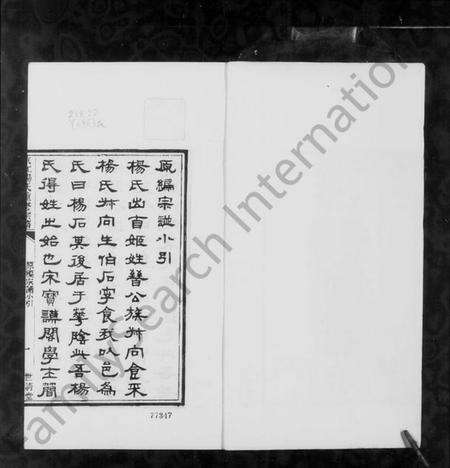 原編宗譜小引
楊氏出自姬姓晉公族叔向食采
楊氏叔向生伯石字食我以邑為
氏曰楊石其後居于華陰此吾楊
氏得姓之始也宋寶謨閣學士簡
原編宗譜小引
一
世講堂
77347
FamilySearch International